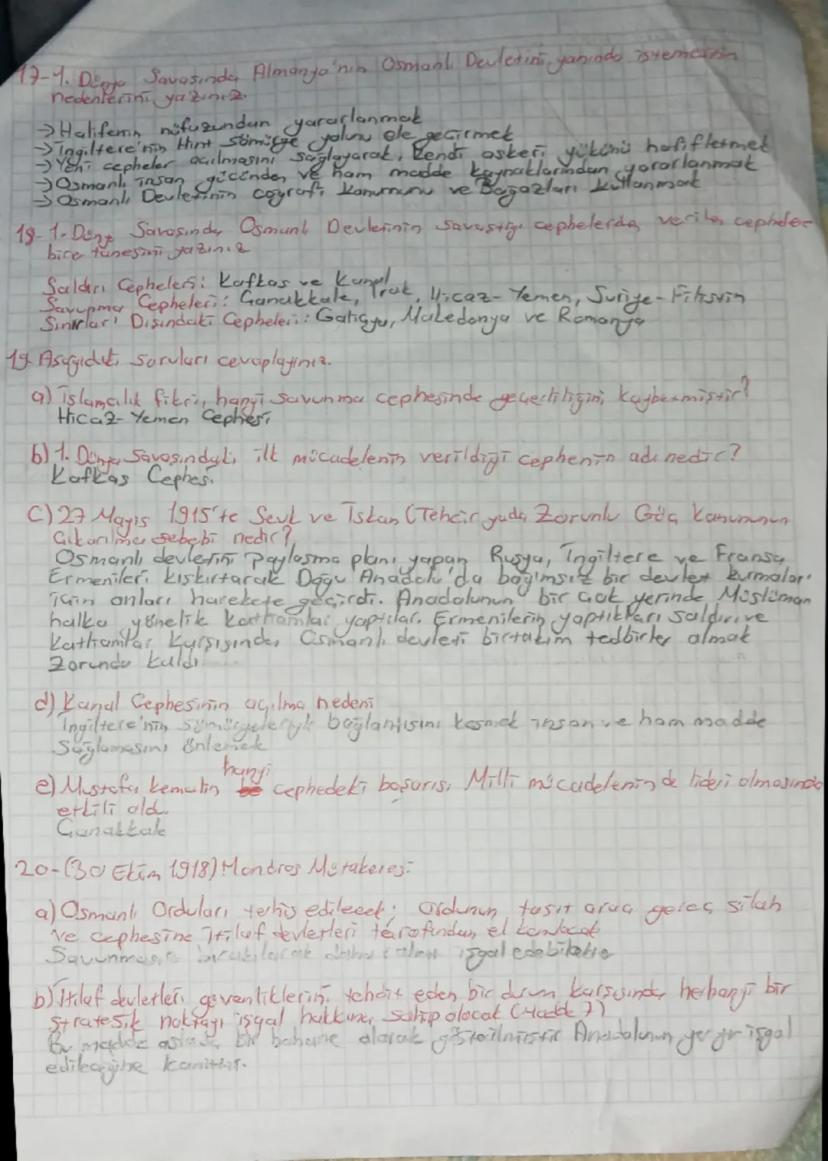 17-1. Dünya Savaşında Almanya'nın Osmanlı Devletini yanında istemesinin
nedenlerini yazınız.
→Halifenin nüfuzundan yararlanmak
→İngiltere'nin Hint sömürge yolunu ele geçirmek
→Yeni cepheler açılmasını sağlayarak, kendi askeri yükünü hafifletmek
→Osmanlı insan gücünden ve ham madde kaynaklarından yararlanmak
→Osmanlı Devletinin coğrafi konumunu ve Boğazları kullanmak
18-1. Dünya Savaşında Osmanlı Devletinin savaştığı cephelerde, verilen cepheler
birer tanesini yazınız
Saldırı Cepheleri: Kafkas ve Kanal
Savunma Cepheleri: Çanakkale, Irak, Hicaz-Yemen, Suriye-Filistin
Sınırları Dışındaki Cepheleri: Galiçya, Makedonya ve Romanya
19 Aşağıdaki soruları cevaplayınız.
a) İslamcılık fikri, hangi savunma cephesinde geçerliliğini kaybetmiştir?
Hicaz-Yemen Cephesi
b) 1. Dünya Savaşındaki ilk mücadelenin verildiği cephenin adı nedir?
Kafkas Cephesi
C) 27 Mayıs 1915'te Sevk ve İskan (Tehcir yada Zorunlu Göç kanununun
çıkarılma sebebi nedir?
Osmanlı devletini paylaşma planı yapan Rusya, İngiltere ve Fransa
Ermenileri kışkırtarak Doğu Anadolu'da bağımsız bir devlet kurmaları
için onları harekete geçirdi. Anadolunun bir çok yerinde Müslüman
halka yönelik katliamlar yaptılar. Ermenilerin yaptıkları saldırı ve
katliamlar karşısında Osmanlı devleti birtakım tedbirler almak
zorunda kaldı
d) Kanal Cephesinin açılma nedeni
İngiltere'nin sömürgeleriyle bağlantısını kesmek insan ve ham madde
sağlamasını önlemek
e) Mustafa kemalin hangi cephedeki başarısı Milli mücadelenin de lideri olmasında
etkili oldu
Çanakkale
20-(30 Ekim 1918) Mondros Mütakeresi:
a) Osmanlı Orduları terhis edilecek; ordunun taşıt araç gereç silah
ve cephesine İtilaf devletleri tarafından el konacak
Savunmasız bırakılarak işgal edebilme
b) İtilaf devletleri güvenliklerini tehdit eden bir durum karşısında herhangi bir
stratejik noktayı işgal hakkına sahip olacak (Madde 7)
Bu madde aslında bir bahane olarak gösterilmiştir Anadolunun yer yer işgal
edileceğine kanıttır.